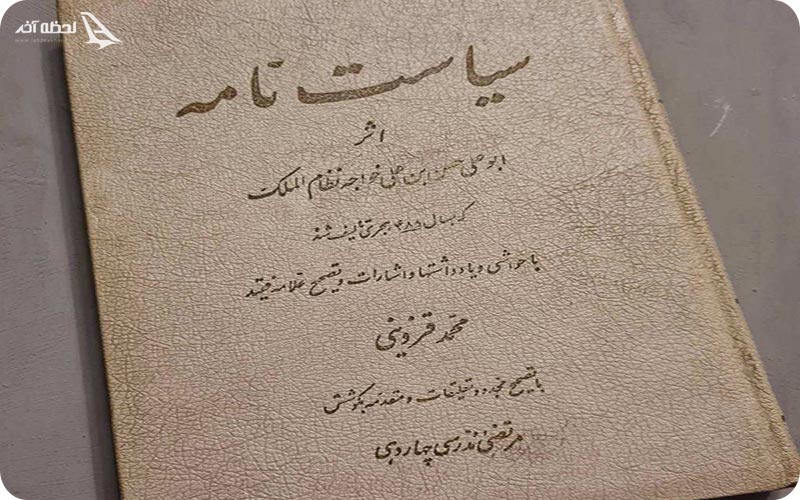 لحظه آخر
سیاست نامه
اثر
ابوعلی حسن ابن علی خواجه نظام الملک
که بسال ۴۸۵ هجری تألیف شد
با حواشی و یادداشتها و اشارات و تصحیح علامه فقید
محمد قزوینی
با تصحیح مجدد و تعلیقات و مقدمه بکوشش
مرتضی مدرسی چهاردهی